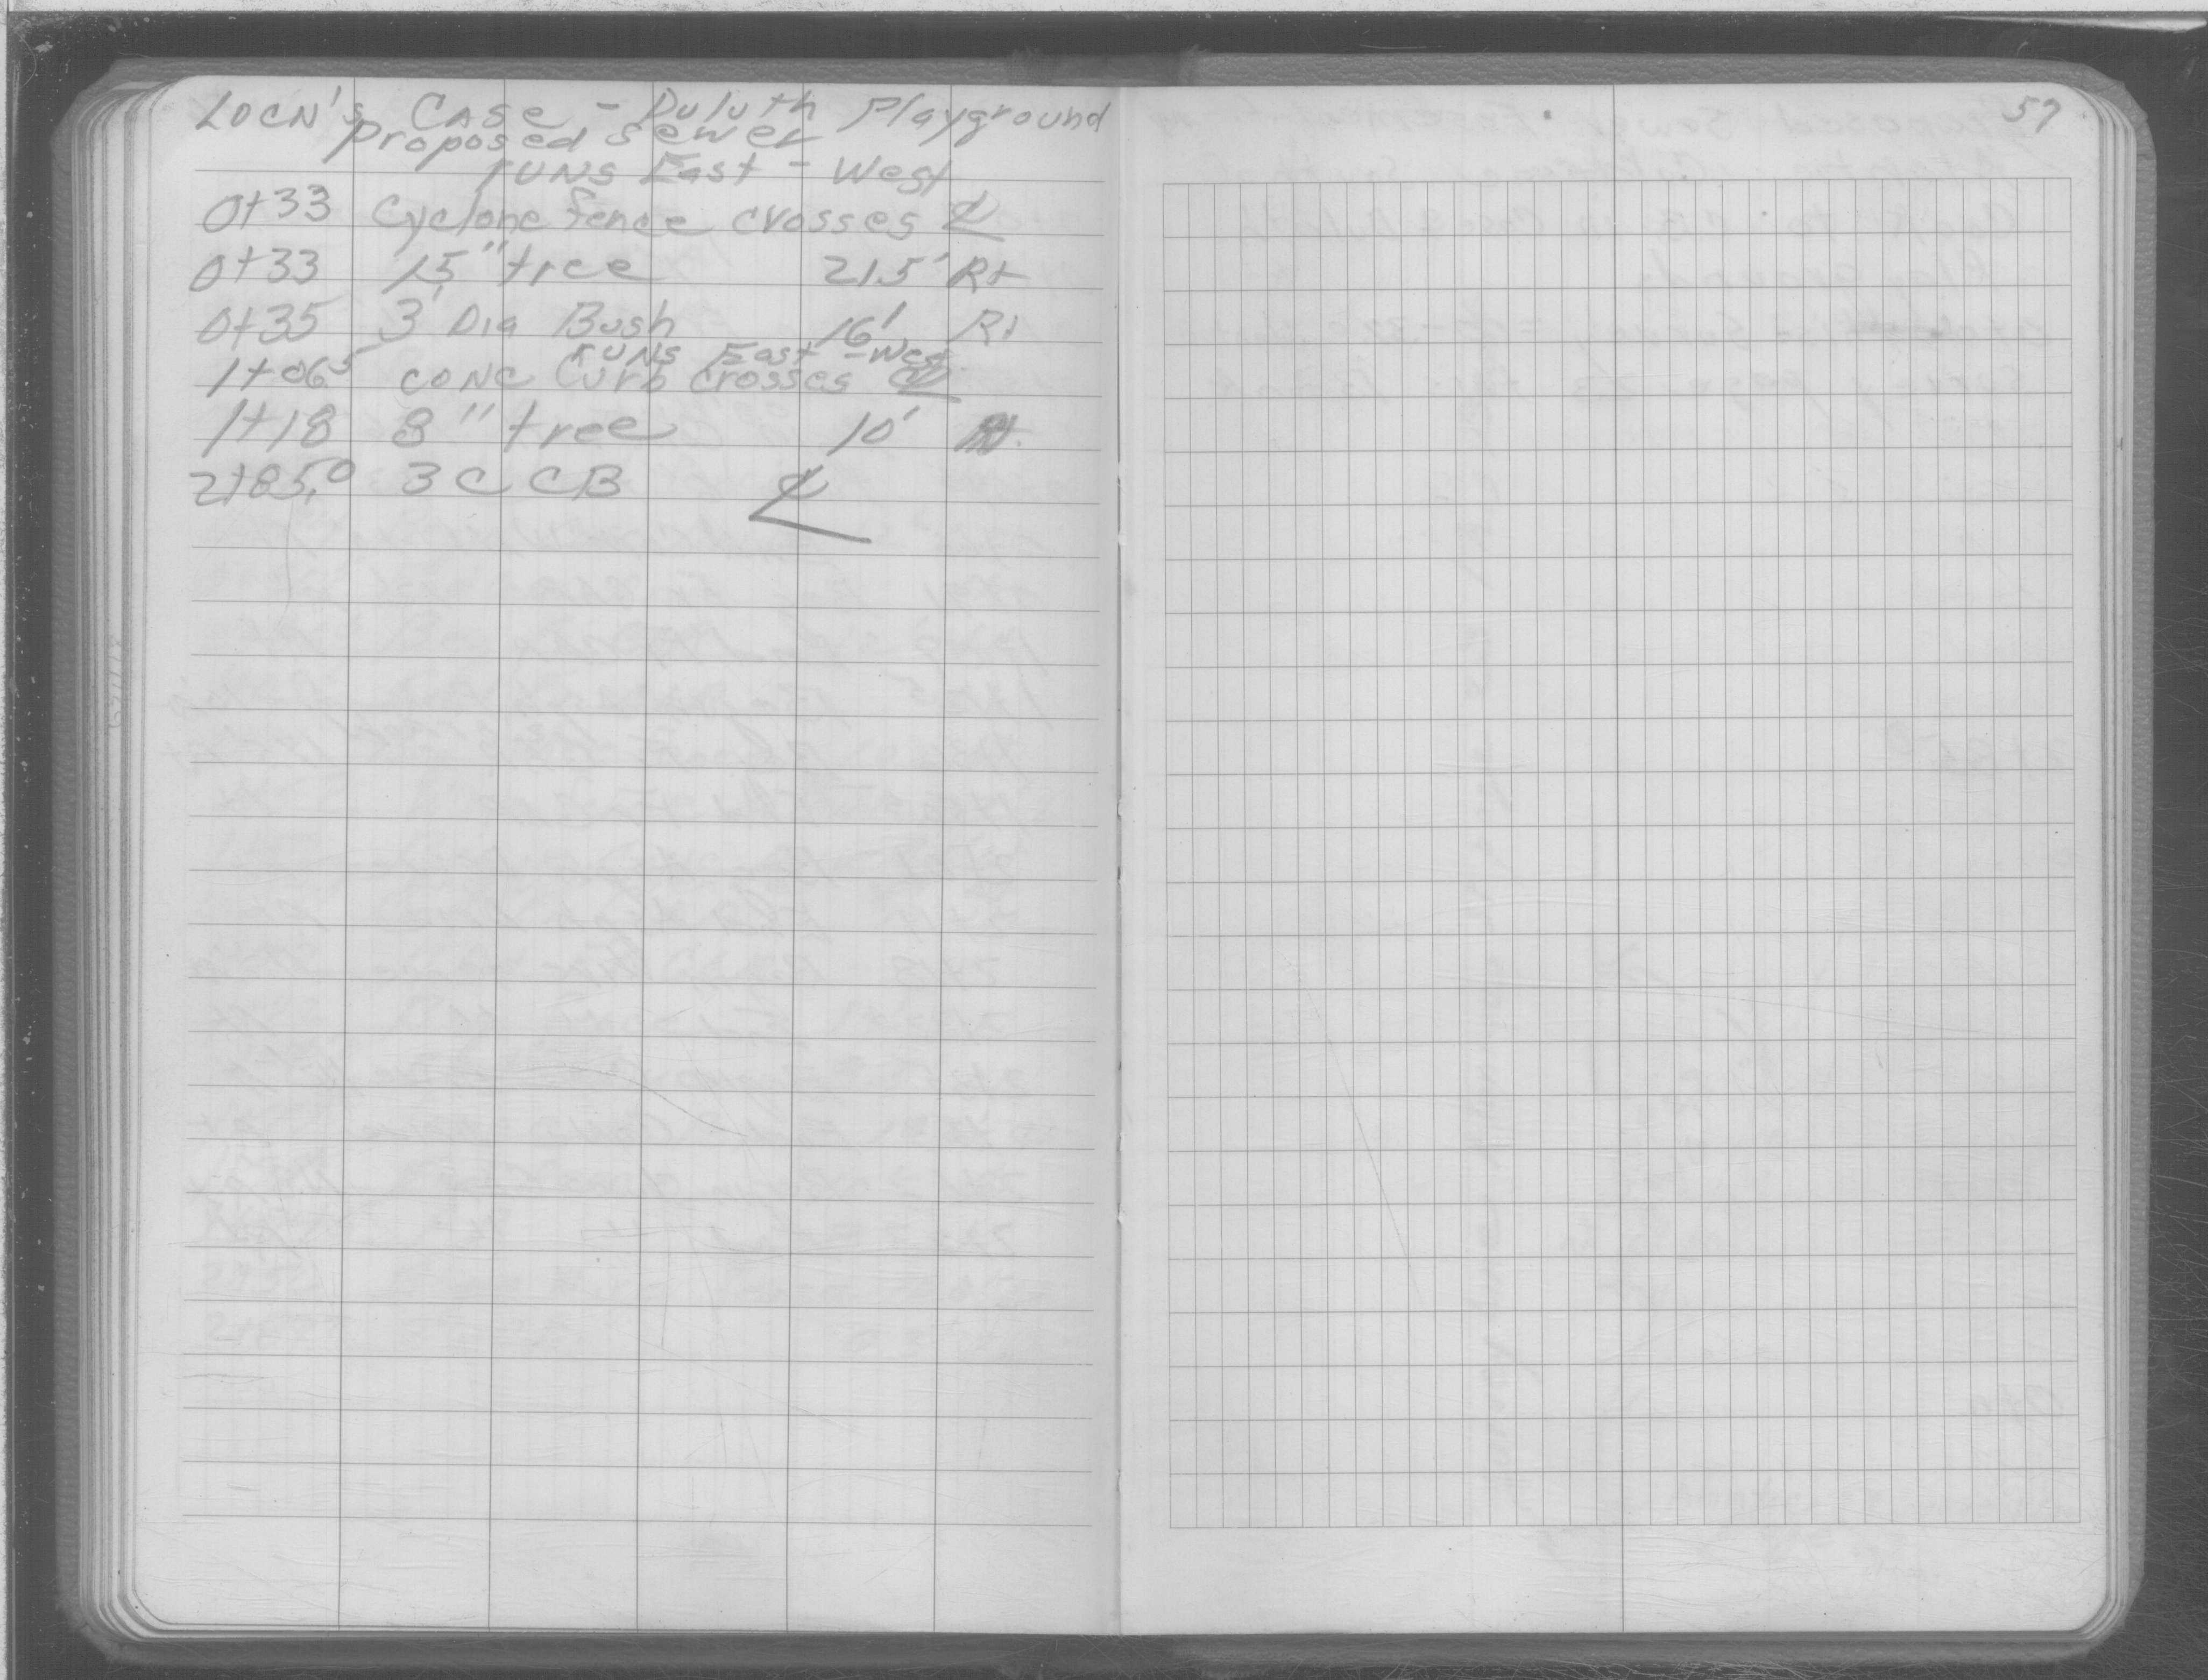 LOCN's Case - Duluth Playground
Proposed Sewer
runs East - West
0+33 Cyclone fence crosses ℄
0+33 15" tree 21.5' Rt
0+35 3' Dia Bush 16' Rt
runs East - West
1+06.5 conc Curb crosses ℄
1+18 8" tree 10'
2+85.0 3 C CB ℄
57